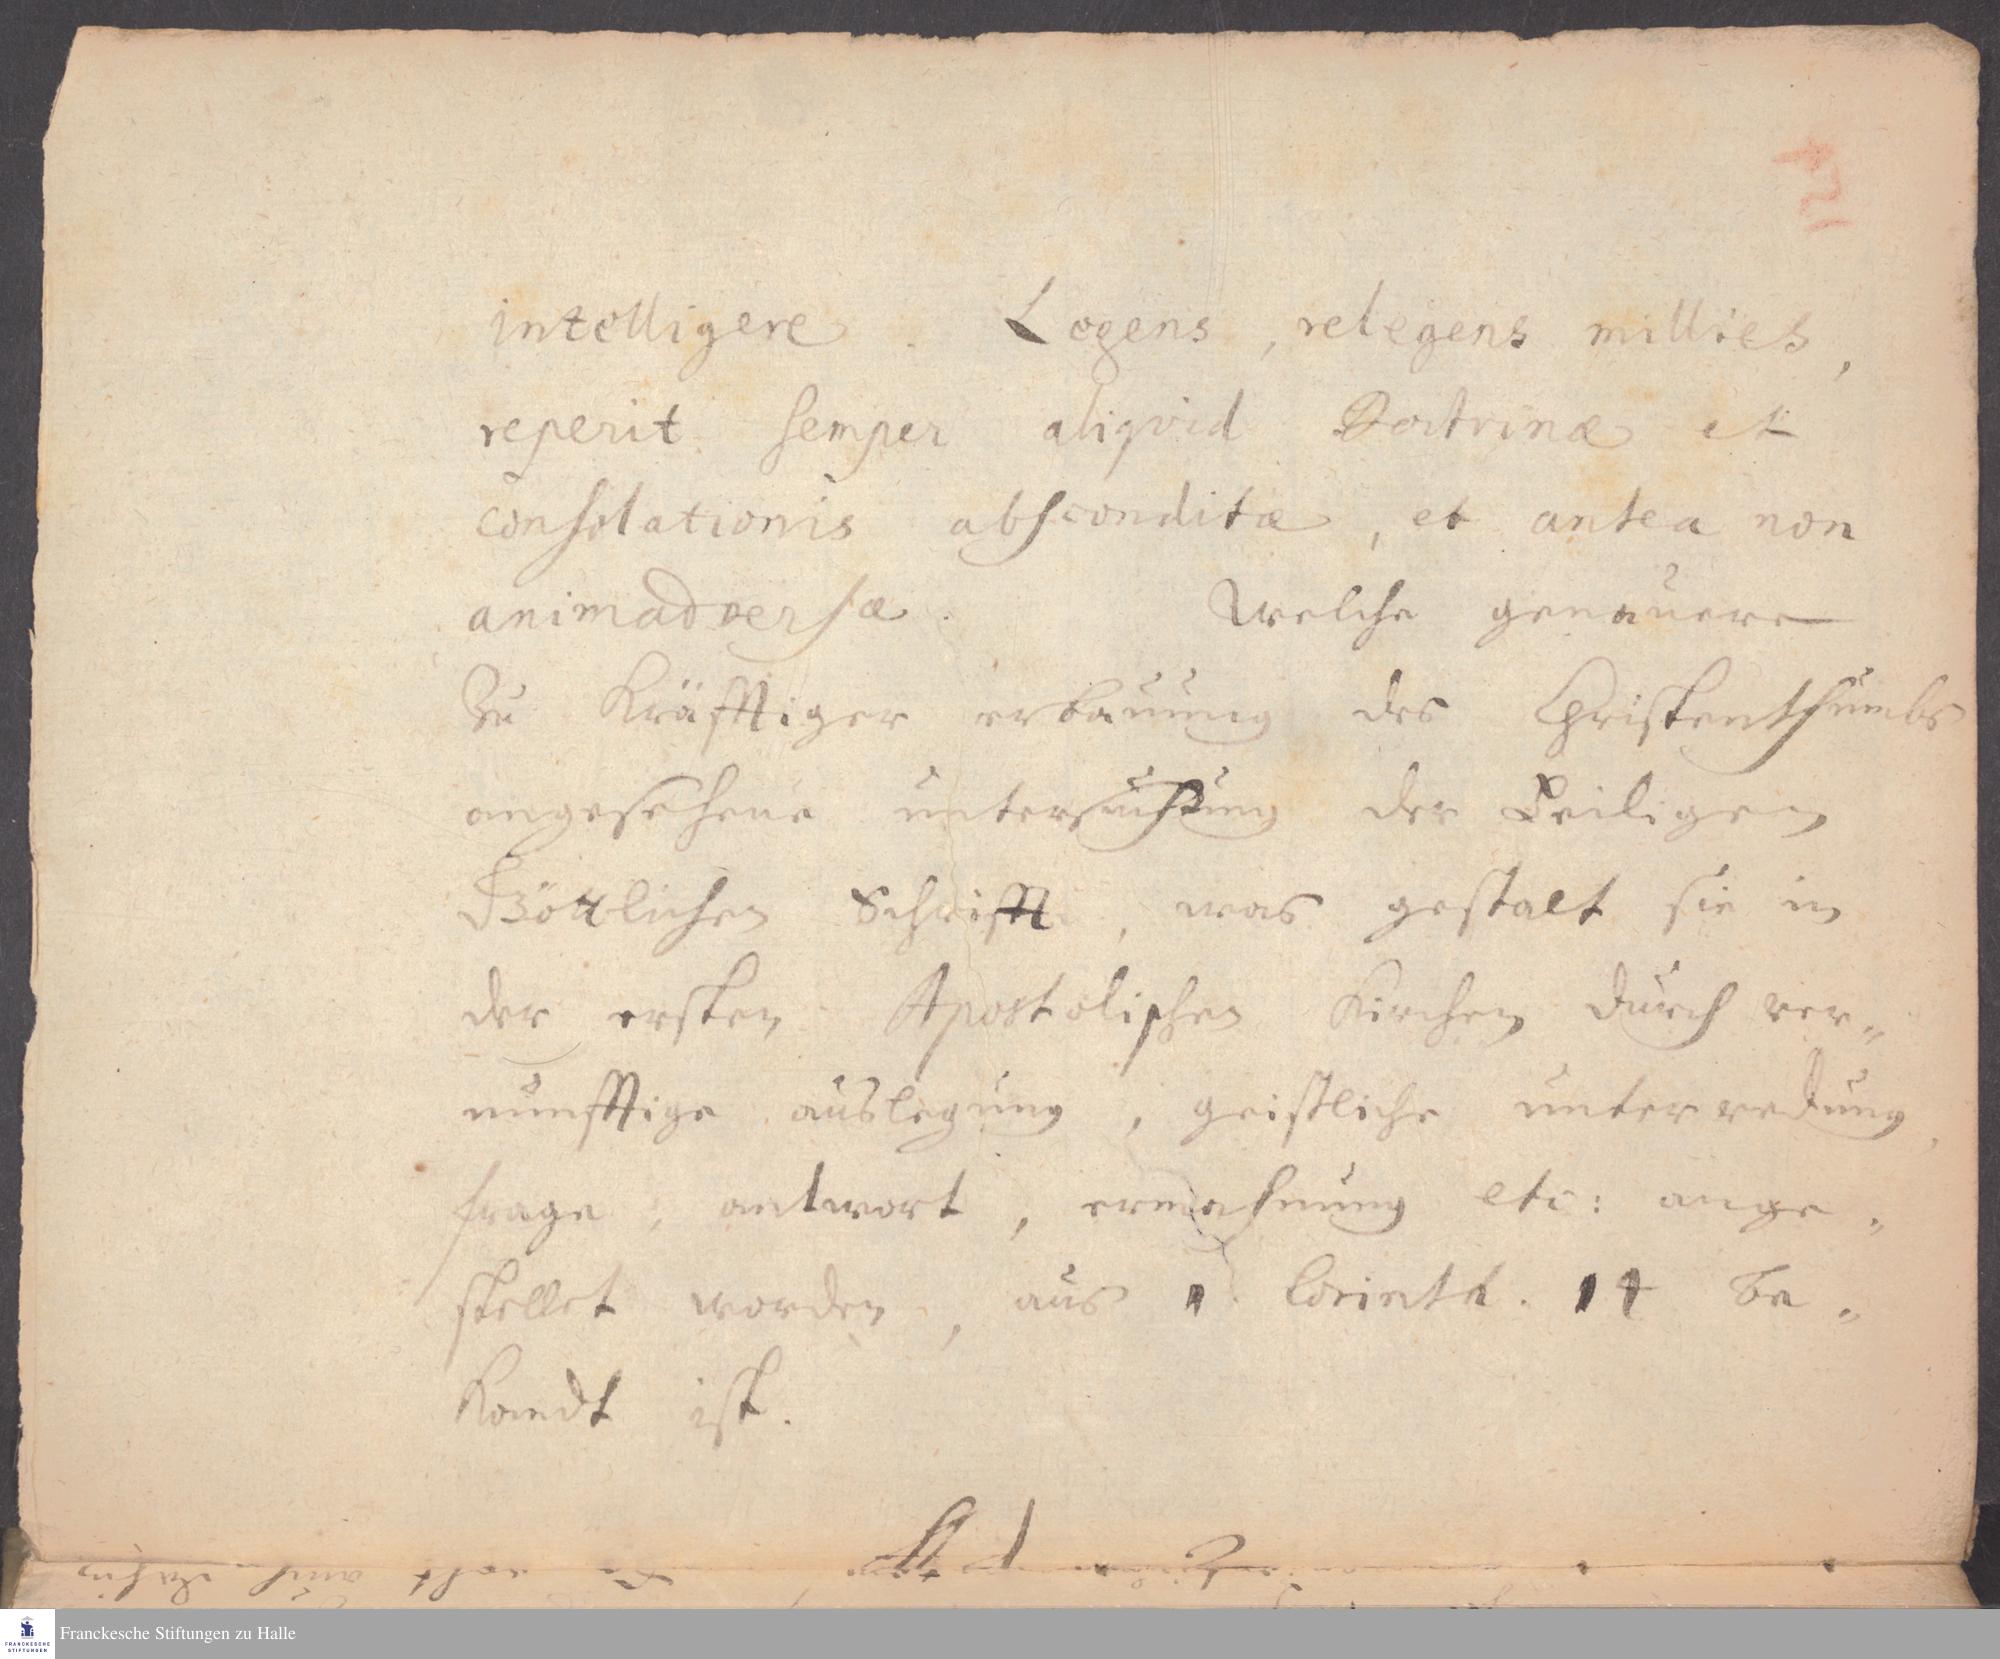 intelligere. Legens, relegens millies,
reperit semper aliqvid Doctrinæ et
consolationis absconditæ, et antea non
animadversæ. Welche genauere
Zu Kräfftiger erbauung des Christenthumbs
angesehene untersuchung der Heiligen
Göttlichen Schrifft, was gestalt sie in
der ersten Apostolischen Kirchen durch ver-
nunfftige auslegung, geistliche unterredung,
frage, antwort, ermahnung etc: ange-
stellet worden, aus 1. Corinth. 14 be-
Kandt ist.
Franckesche Stiftungen zu Halle
FRANCKESCHE
STIFTUNGEN